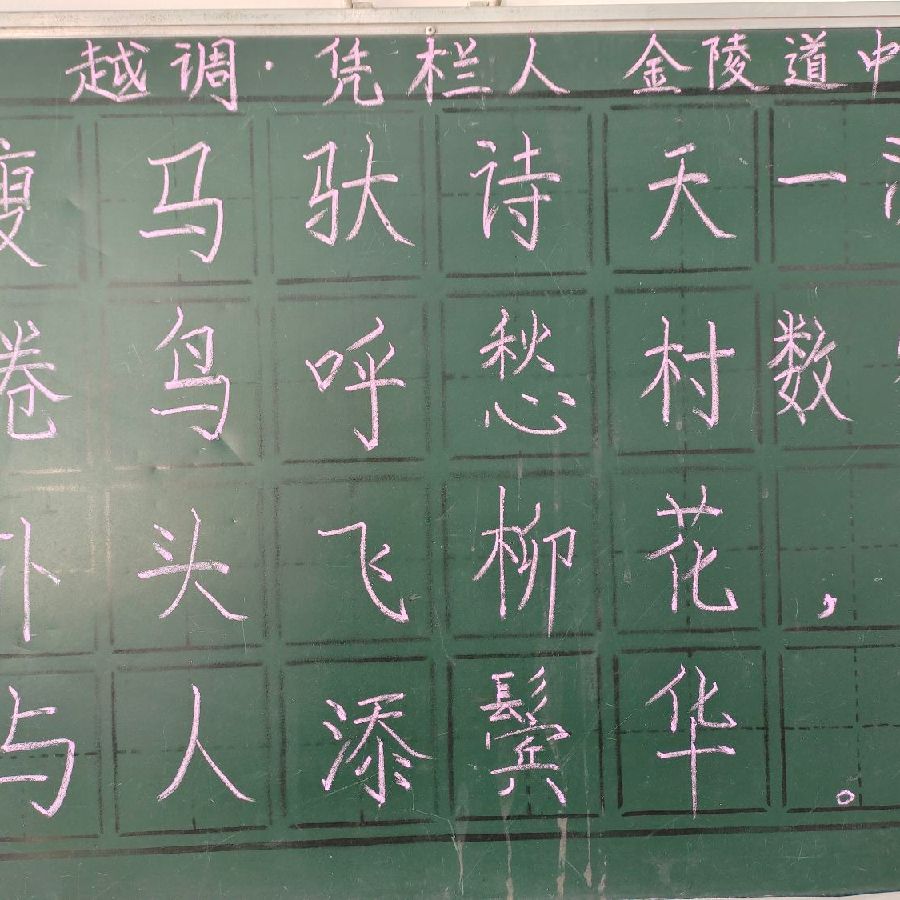 越调·凭栏人 金陵道中
瘦马驮诗天一
倦鸟呼愁村数
扑头飞柳花，
与人添鬓华。